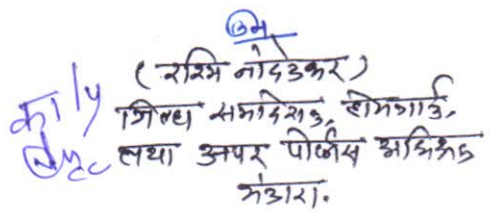 (रश्मि नांदेडकर)
जिल्हा समादेशक, होमगार्ड,
तथा अपर पोलीस अधिक्षक
भंडारा.